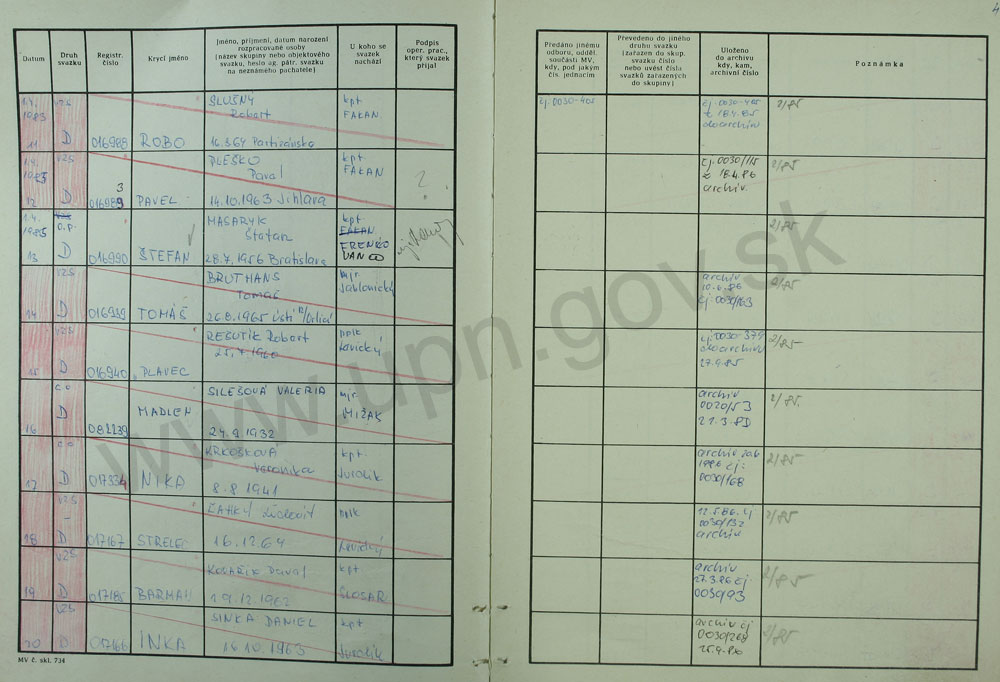 Datum
Druh
svazku
Registr.
číslo
Krycí jméno
Jméno, příjmení, datum narození
rozpracované osoby
(název skupiny nebo objektového
svazku, heslo ag. pátr. svazku
na neznámého pachatele)
U koho se
svazek
nachází
Podpis
oper. prac.,
který svazek
přijal
Předáno jinému
odboru, odděl.
součásti MV,
kdy, pod jakým
čís. jednacím
Převedeno do jiného
druhu svazku
(zařazen do skup.
svazku číslo
nebo uvést čísla
svazků zařazených
do skupiny)
Uloženo
do archívu
kdy, kam,
archivní číslo
Poznámka
1.4.
1985
11
VZS
D
016988
ROBO
SLUŠNÝ
Robert
16.3.64 Partizánske
kpt
FAKAN
čj. 0030-405
čj. 0030-405
z 18.4.85
do archivu
2/85
1.4.
1985
12
VZS
D
3
016989
PAVEL
PLEŠKO
Pavol
14.10.1963 Jihlava
kpt
FAKAN
?
čj. 0030/115
z 18.4.86
archiv
2/85
1.4.
1985
13
D
016990
ŠTEFAN
MASARYK
Štefan
28.7.1956 Bratislava
kpt
FAKAN
FRENKO
IVAN
2/85
14
VZS
D
016939
TOMÁŠ
BRUTHANS
Tomáš
26.8.1965 Ústí n/Orlicí
mjr.
Jablonický
archiv
10.6.86
čj. 0030/163
2/85
15
VZS
D
016940
PLAVEC
REŠUTÍK Robert
25.7.1966
pplk
Lovický
čj. 0030-379
do archivu
27.9.85
2/85
16
D
MADLEN
SILEŠOVÁ VALERIA
24.9.1932
mjr.
MIŽÁK
archiv
0020/53
2/85
17
D
017334
NIKA
KRKOŠKOVÁ
Veronika
8.8.1941
kpt.
Jurolik
0030/168
2/85
18
VZS
D
017167
STRELEC
ĽAHKÝ Ľudovít
16.12.64
pplk
Lovický
12.5.86 čj
0030/132
archiv
2/85
19
VZS
D
017185
BARMAN
KOSAŘÍK Pavel
19.12.1962
kpt
SLOSAR
archiv
27.3.86 čj
0030/93
2/85
20
VZS
D
017166
INKA
SINKA DANIEL
16.10.1963
kpt
Jurolik
archiv čj
0030/268
25.9.86
2/85
MV č. skl. 734
www.upn.gov.sk